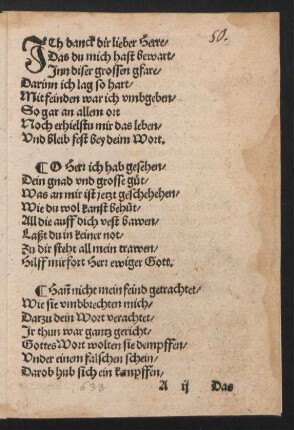 50.
ICh danck dir lieber Herre/
Das du mich hast bewart/
Jnn diser grossen gfare/
Darinn ich lag so hart/
Mit feinden war ich vmbgeben/
So gar an allem ort
Noch erhielstu mir das leben/
Vnd bleib fest bey deim Wort.
¶ O Herr ich hab gesehen/
Dein gnad vnd grosse güt/
Was an mir ist jetzt geschehehen/
Wie du wol kanst behüt/
All die auff dich vest bawen/
Laßt du in keiner not/
Zu dir steht all mein trawen/
Hilff mir fort Herr ewiger Gott.
¶ Han nicht mein feind getrachtet/
Wie sie vmbbrechten mich/
Darzu dein Wort verachtet/
Jr thun war gantz gericht/
Gottes Wort wolten sie dempffen/
Vnder einem falschen schein/
Darob hub sich ein kampffen/
A ij Das